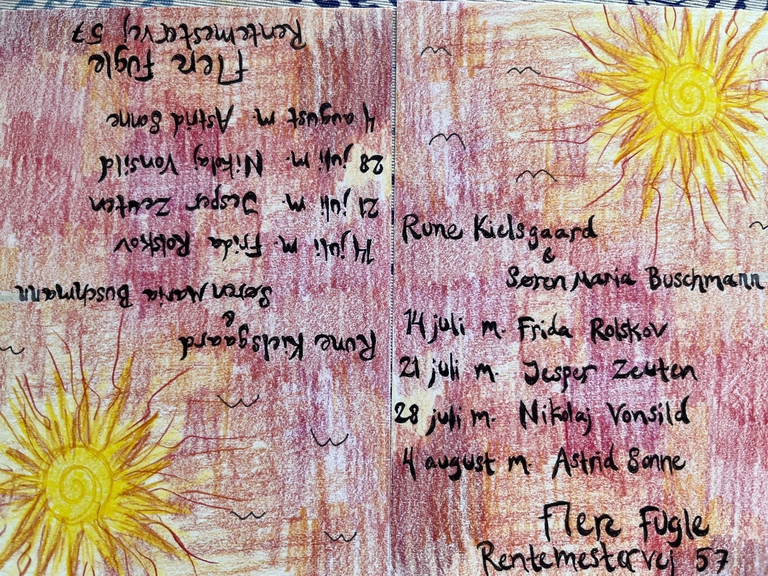 Rune Kielsgaard
&
Søren Maria Buschmann
14 juli m. Frida Rolskov
21 juli m. Jesper Zeuten
28 juli m. Nikolaj Vonsild
4 august m. Astrid Sonne
Flere Fugle
Rentemestervej 57
Rune Kielsgaard
&
Søren Maria Buschmann
14 juli m. Frida Rolskov
21 juli m. Jesper Zeuten
28 juli m. Nikolaj Vonsild
4 august m. Astrid Sonne
Flere Fugle
Rentemestervej 57